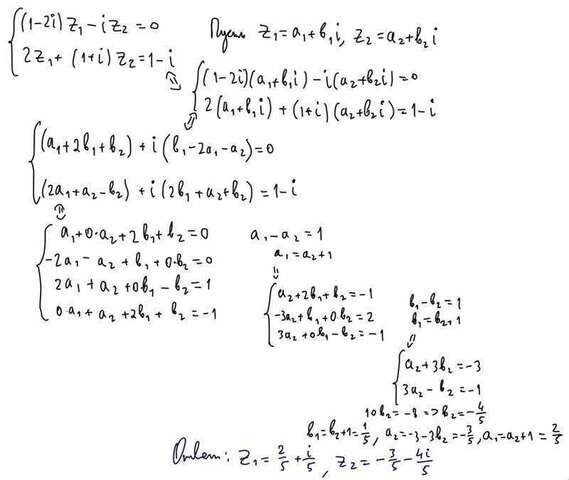 (1-2i) z₁ - i z₂ = 0
2z₁ + (1+i) z₂ = 1-i
Пусть z₁ = a₁ + b₁i, z₂ = a₂ + b₂i
(1-2i)(a₁+b₁i) - i(a₂+b₂i) = 0
2(a₁+b₁i) + (1+i)(a₂+b₂i) = 1-i
(a₁+2b₁+b₂) + i(b₁-2a₁-a₂) = 0
(2a₁+a₂-b₂) + i(2b₁+a₂+b₂) = 1-i
a₁+0·a₂+2b₁+b₂=0
-2a₁-a₂+b₁+0·b₂=0
2a₁+a₂+0b₁-b₂=1
0·a₁+a₂+2b₁+b₂=-1
a₁-a₂=1
a₁=a₂+1
a₂+2b₁+b₂=-1
-3a₂+b₁+0b₂=2
3a₂+0b₁-b₂=-1
b₁-b₂=1
b₁=b₂+1
a₂+3b₂=-3
3a₂-b₂=-1
10b₂=-8 => b₂=-4/5
b₁=b₂+1=1/5, a₂=-3-3b₂=-3/5, a₁=a₂+1=2/5
Ответ: z₁ = 2/5 + i/5, z₂ = -3/5 - 4i/5